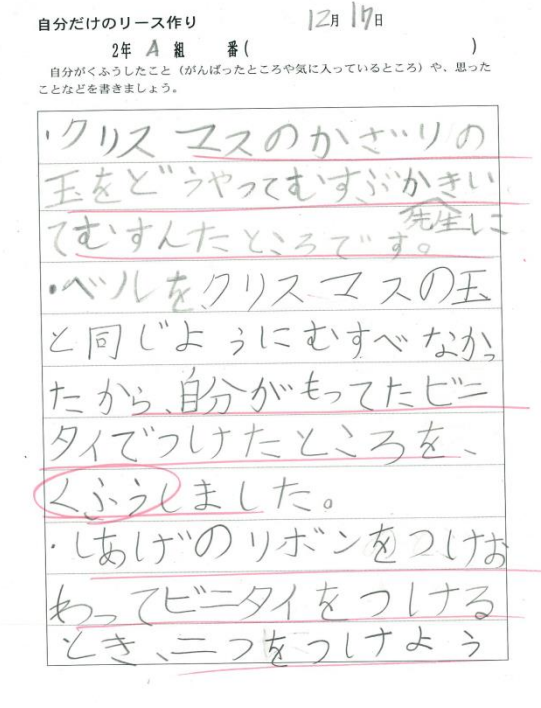 自分だけのリース作り
12月17日
2年 A 組　　番(　　　　)
自分がくふうしたこと（がんばったところや気に入っているところ）や、思った
ことなどを書きましょう。
・クリスマスのかざりの
玉をどうやってむすぶかきい
先生に
てむすんたところです。
・ベルを、クリスマスの玉
と同じようにむすべなかっ
たから、自分がもってたビニ
タイでつけたところを、
くふうしました。
・しあげのリボンをつけお
わってビニタイをつける
とき、二つをつけよう